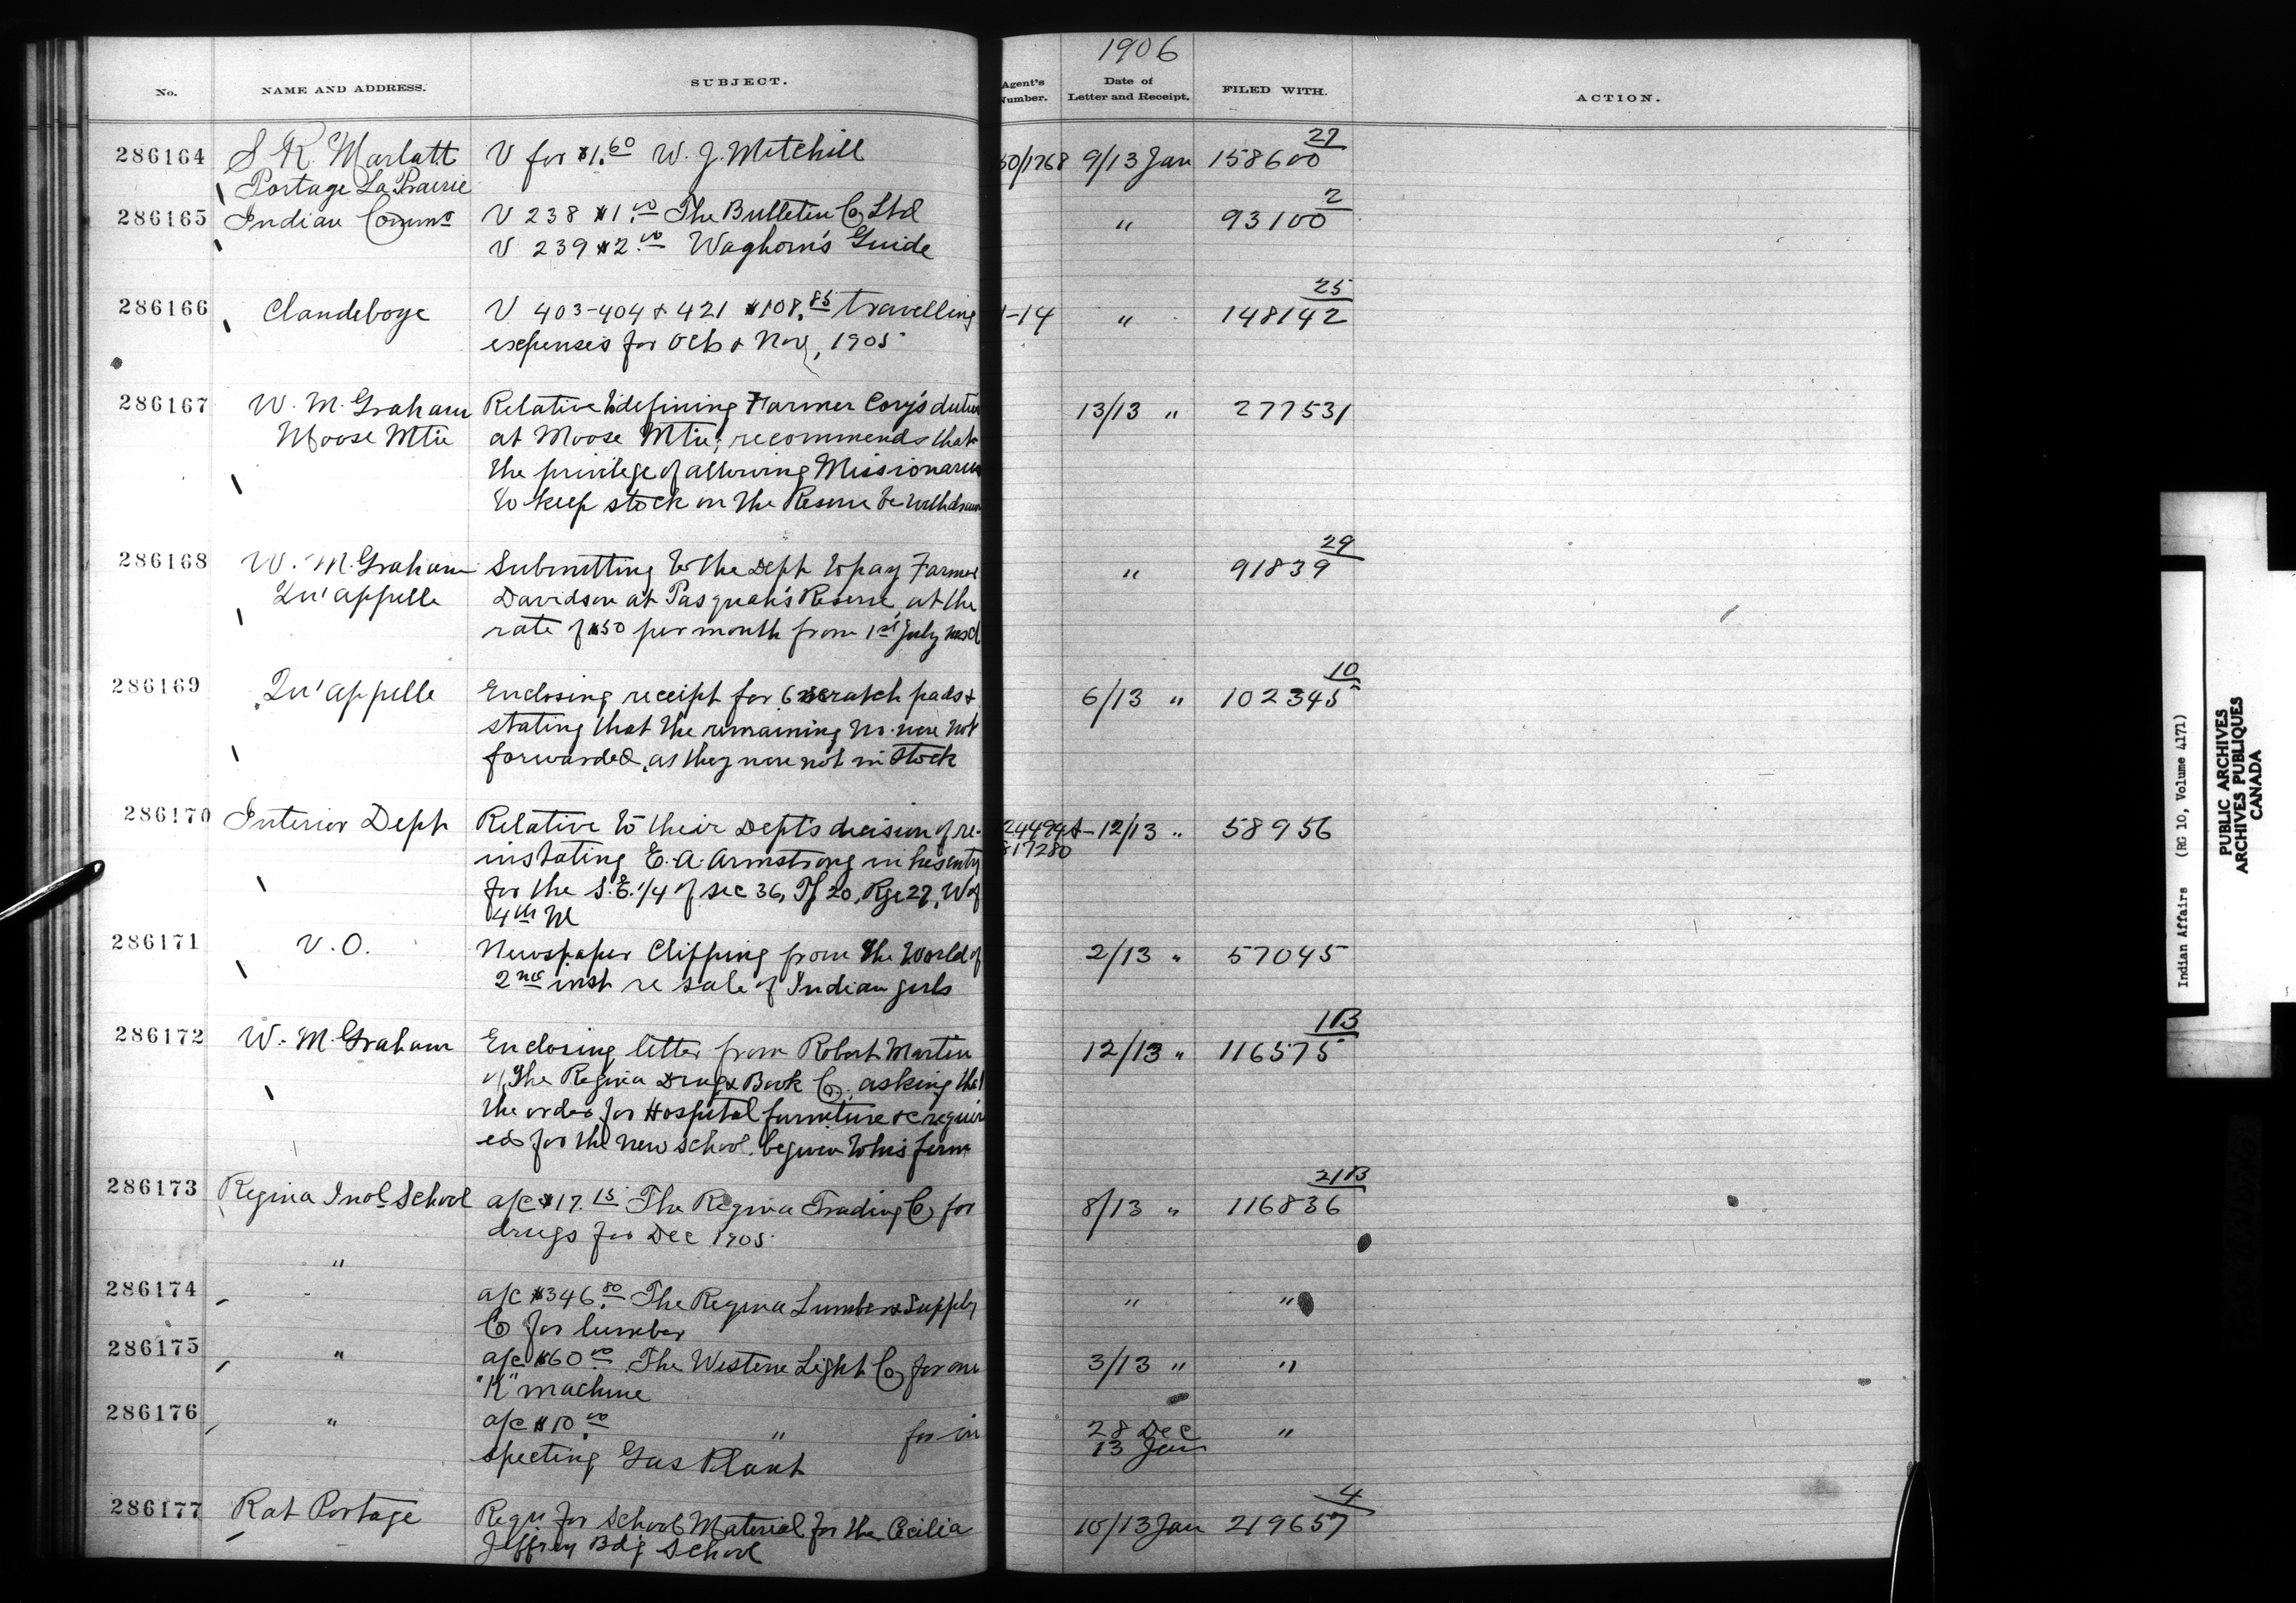 1906
No. NAME AND ADDRESS. SUBJECT. Agent's Number. Date of Letter and Receipt. FILED WITH. ACTION.
286164 S. R. Marlatt V for $1.60 W. J. Mitchill 50/1768 9/13 Jan 158600 27
Portage La Prairie
286165 Indian Commr V 238 $1.00 The Bulletin Co Ltd " 93100 2
V 239 $2.00 Waghorn's Guide
286166 Clandeboye V 403-404 & 421 $108.85 travelling 1-14 " 148142 25
expenses for Oct & Nov, 1905
286167 W. M. Graham Relative to defining Farmer Cory's duties 13/13 " 277531
Moose Mtn at Moose Mtn; recommends that
the privilege of allowing Missionaries
to keep stock on the Reserve be withdrawn
286168 W. M. Graham Submitting to the Dept to pay Farmer " 91839 29
Qu'appelle Davidson at Pasquah's Reserve, at the
rate of $50 per month from 1st July
286169 Qu'appelle Enclosing receipt for scratch pads & 6/13 " 102345 10
stating that the remaining no. were not
forwarded, as they were not in stock
286170 Interior Dept Relative to their Dept's decision of re- 12/13 " 58956
817280
instating E. A. Armstrong in his entry
for the S.E. 1/4 of sec 36, Tp 20, Rge 27, W of
4th M
286171 V.O. Newspaper Clipping from the World of 2/13 " 57045
2nd inst re sale of Indian girls
286172 W. M. Graham Enclosing letter from Robert Martin 12/13 " 116575 1B
of The Regina Drug & Book Co. asking that
the order for Hospital furniture &c requir
ed for the new school be given to his firm
286173 Regina Indl School a/c $17.15 The Regina Trading Co for 8/13 " 116836 21B
drugs for Dec 1905
"
286174 a/c $346.80 The Regina Lumber & Supply " "
Co for lumber
286175 " a/c $60.00 The Western Light Co for one 3/13 " "
"K" machine
286176 " a/c $10.00 " for in 28 Dec "
13 Jan
specting Gas Plant
286177 Rat Portage Requ for School Material for the Cecilia 10/13 Jan 219657 4
Jeffrey Bdg School
Indian Affairs (RG 10, Volume 4171)
PUBLIC ARCHIVES
ARCHIVES PUBLIQUES
CANADA